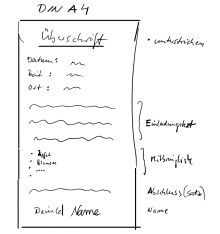 DIN A4
Überschrift
• unterstrichen
Datum:
Zeit:
Ort:
Einladungstext
• Äpfel
• Birnen
• ....
Mitbringliste
Abschluss(satz)
Name
Dein(e) Name